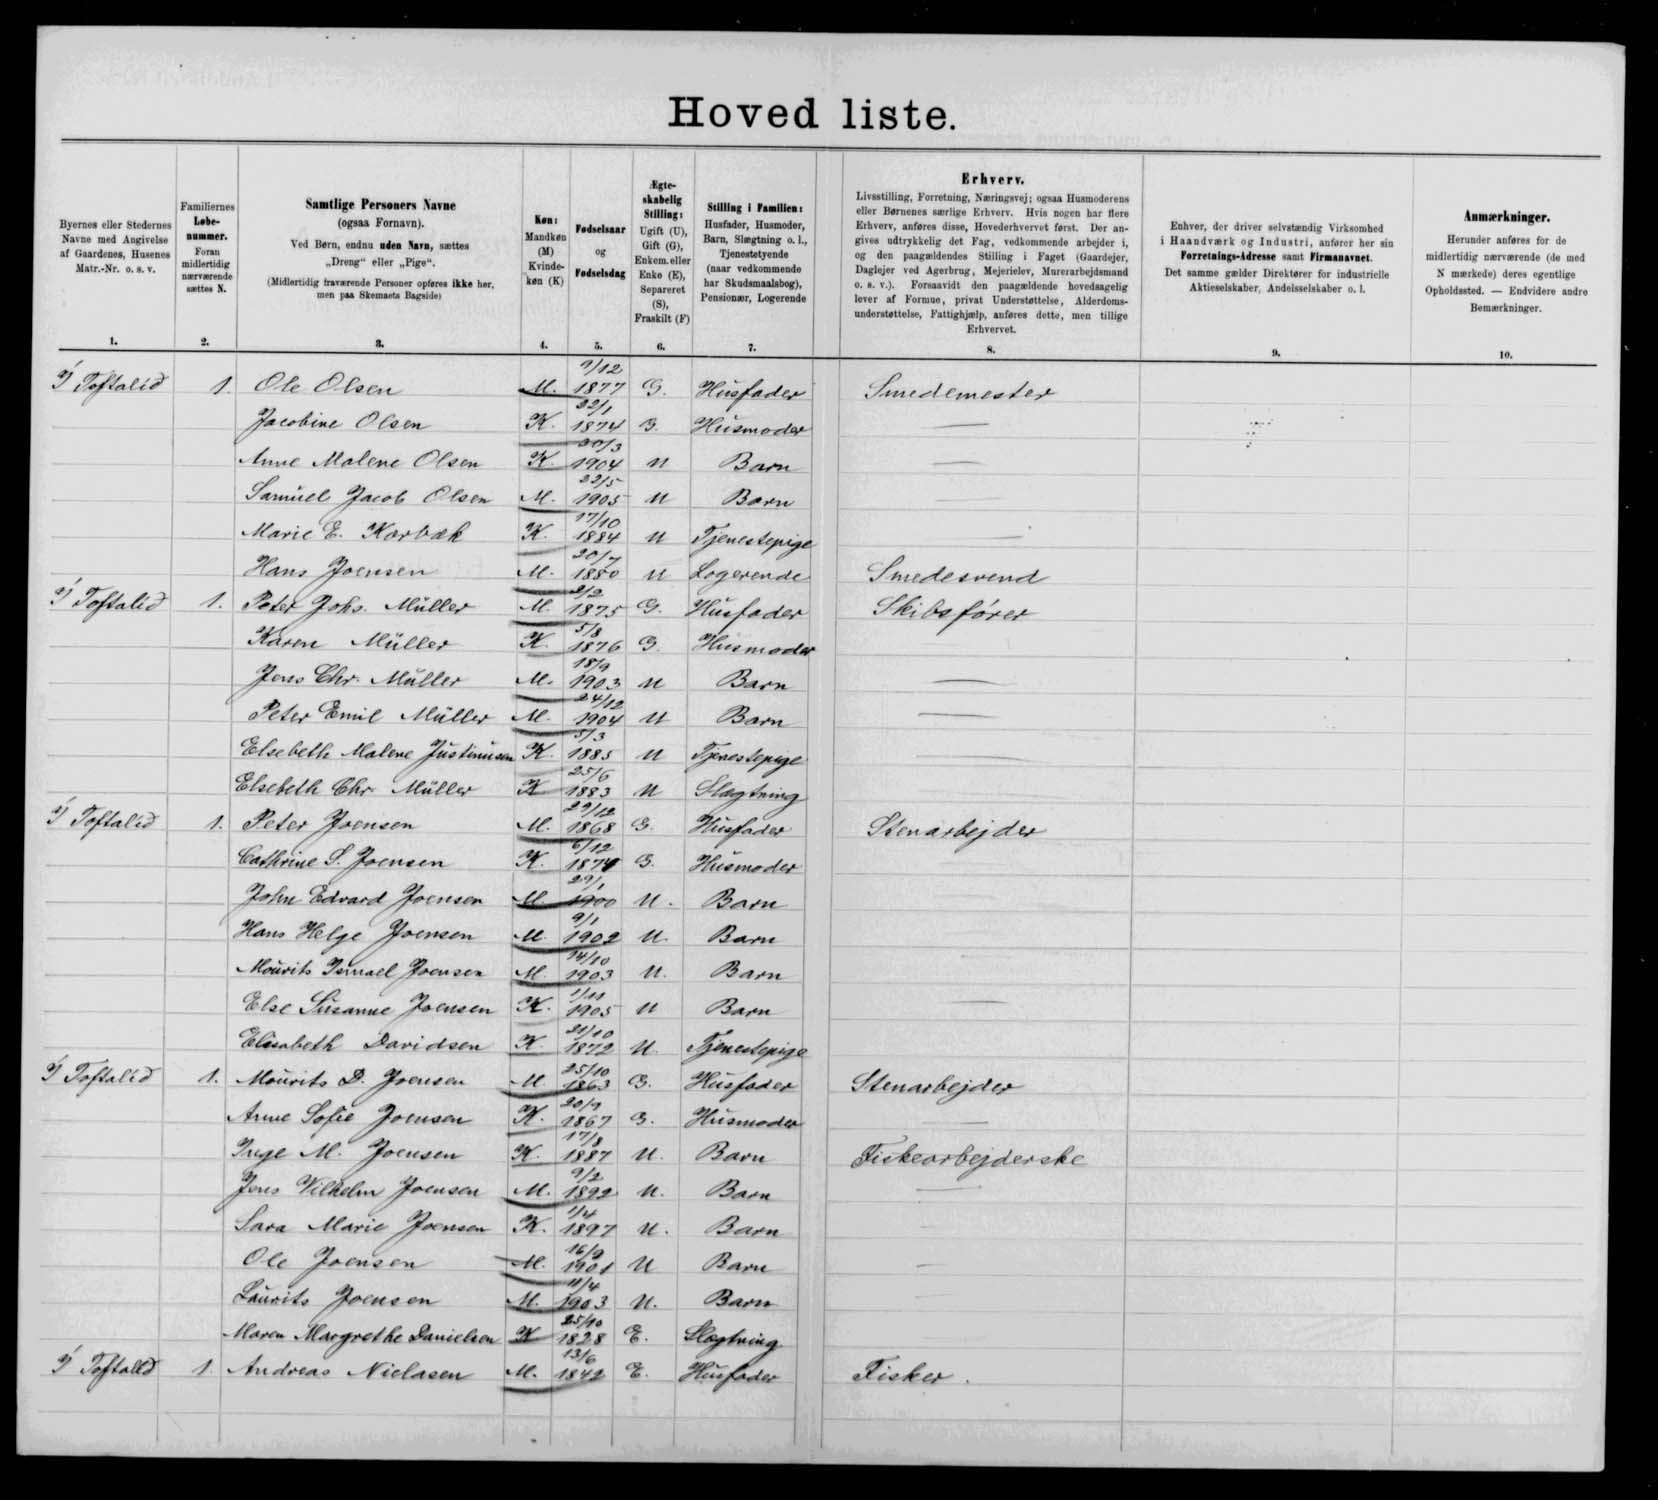 Hoved liste.
Byernes eller Stedernes
Navne med Angivelse
af Gaardenes, Husenes
Matr.-Nr. o. s. v.
1.
Familiernes
Løbe-
nummer.
Foran
midlertidig
nærværende
sættes N.
2.
Samtlige Personers Navne
(ogsaa Fornavn).
Ved Børn, endnu uden Navn, sættes
„Dreng“ eller „Pige“.
(Midlertidig fraværende Personer opføres ikke her,
men paa Skemaets Bagside)
3.
Køn:
Mandkøn
(M)
Kvinde-
køn (K)
4.
Fødselsaar
og
Fødselsdag
5.
Ægte-
skabelig
Stilling:
Ugift (U),
Gift (G),
Enkem. eller
Enke (E),
Separeret
(S),
Fraskilt (F)
6.
Stilling i Familien:
Husfader, Husmoder,
Barn, Slægtning o. l.,
Tjenestetyende
(naar vedkommende
har Skudsmaalsbog),
Pensionær, Logerende
7.
Erhverv.
Livsstilling, Forretning, Næringsvej; ogsaa Husmoderens
eller Børnenes særlige Erhverv. Hvis nogen har flere
Erhverv, anføres disse, Hovederhvervet først. Der an-
gives udtrykkelig det Fag, vedkommende arbejder i,
og den paagældendes Stilling i Faget (Gaardejer,
Daglejer ved Agerbrug, Mejerielev, Murerarbejdsmand
o. s. v.). Forsaavidt den paagældende hovedsagelig
lever af Formue, privat Understøttelse, Alderdoms-
understøttelse, Fattighjælp, anføres dette, men tillige
Erhvervet.
8.
Enhver, der driver selvstændig Virksomhed
i Haandværk og Industri, anfører her sin
Forretnings-Adresse samt Firmanavnet.
Det samme gælder Direktører for industrielle
Aktieselskaber, Andelsselskaber o. l.
9.
Anmærkninger.
Herunder anføres for de
midlertidig nærværende (de med
N mærkede) deres egentlige
Opholdssted. — Endvidere andre
Bemærkninger.
10.
I Toftalid 1. Ole Olsen M. 9/12 1877 G. Husfader Smedemester
Jacobine Olsen K. 22/1 1874 G. Husmoder —
Anne Malene Olsen K. 20/3 1904 U Barn —
Samuel Jacob Olsen M. 22/5 1905 U Barn —
Marie E. Karbæk K. 17/10 1884 U Tjenestepige —
Hans Joensen M. 20/7 1880 U Logerende Smedesvend
I Toftalid 1. Peter Johs. Müller M. 2/2 1875 G. Husfader Skibsfører
Karen Müller K. 5/8 1876 G. Husmoder —
Jens Chr. Müller M. 18/9 1903 U Barn —
Peter Emil Müller M. 24/12 1904 U Barn —
Elsebeth Malene Justinusen K. 5/3 1885 U Tjenestepige —
Elsebeth Chr. Müller K 25/6 1883 U Slægtning
I Toftalid 1. Peter Joensen M. 29/12 1868 G. Husfader Stenarbejder
Cathrine S. Joensen K. 6/12 1874 G. Husmoder
John Edvard Joensen M 29/1 1900 U. Barn
Hans Helge Joensen M. 9/1 1902 U. Barn
Mourits Ismael Joensen M. 14/10 1903 U. Barn
Else Susanne Joensen K. 1/11 1905 U Barn —
Elisabeth Davidsen K. 21/10 1872 U. Tjenestepige
I Toftalid 1. Mourits D. Joensen M 25/10 1863 G. Husfader Stenarbejder
Anne Sofie Joensen K. 20/9 1867 G. Husmoder —
Inge M. Joensen K. 17/8 1887 U. Barn Fiskearbejderske
Jens Vilhelm Joensen M. 9/2 1892 U. Barn —
Sara Marie Joensen K. 1/4 1897 U. Barn
Ole Joensen M. 16/9 1901 U Barn —
Laurits Joensen M. 11/4 1903 U. Barn —
Maren Margrethe Danielsen K 25/10 1828 E. Slægtning
I Toftalid 1. Andreas Niclasen M. 13/6 1842 E. Husfader Fisker.